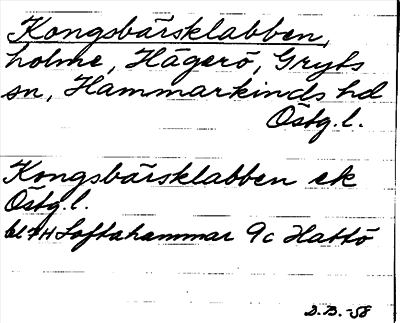 Kongsbärsklabben,
holme, Hägerö, Gryts
sn, Hammarkinds hd
Östg.l.
Kongsbärsklabben ek
Östg.l.
Loftahammar 9c Hattö
D.B.-58